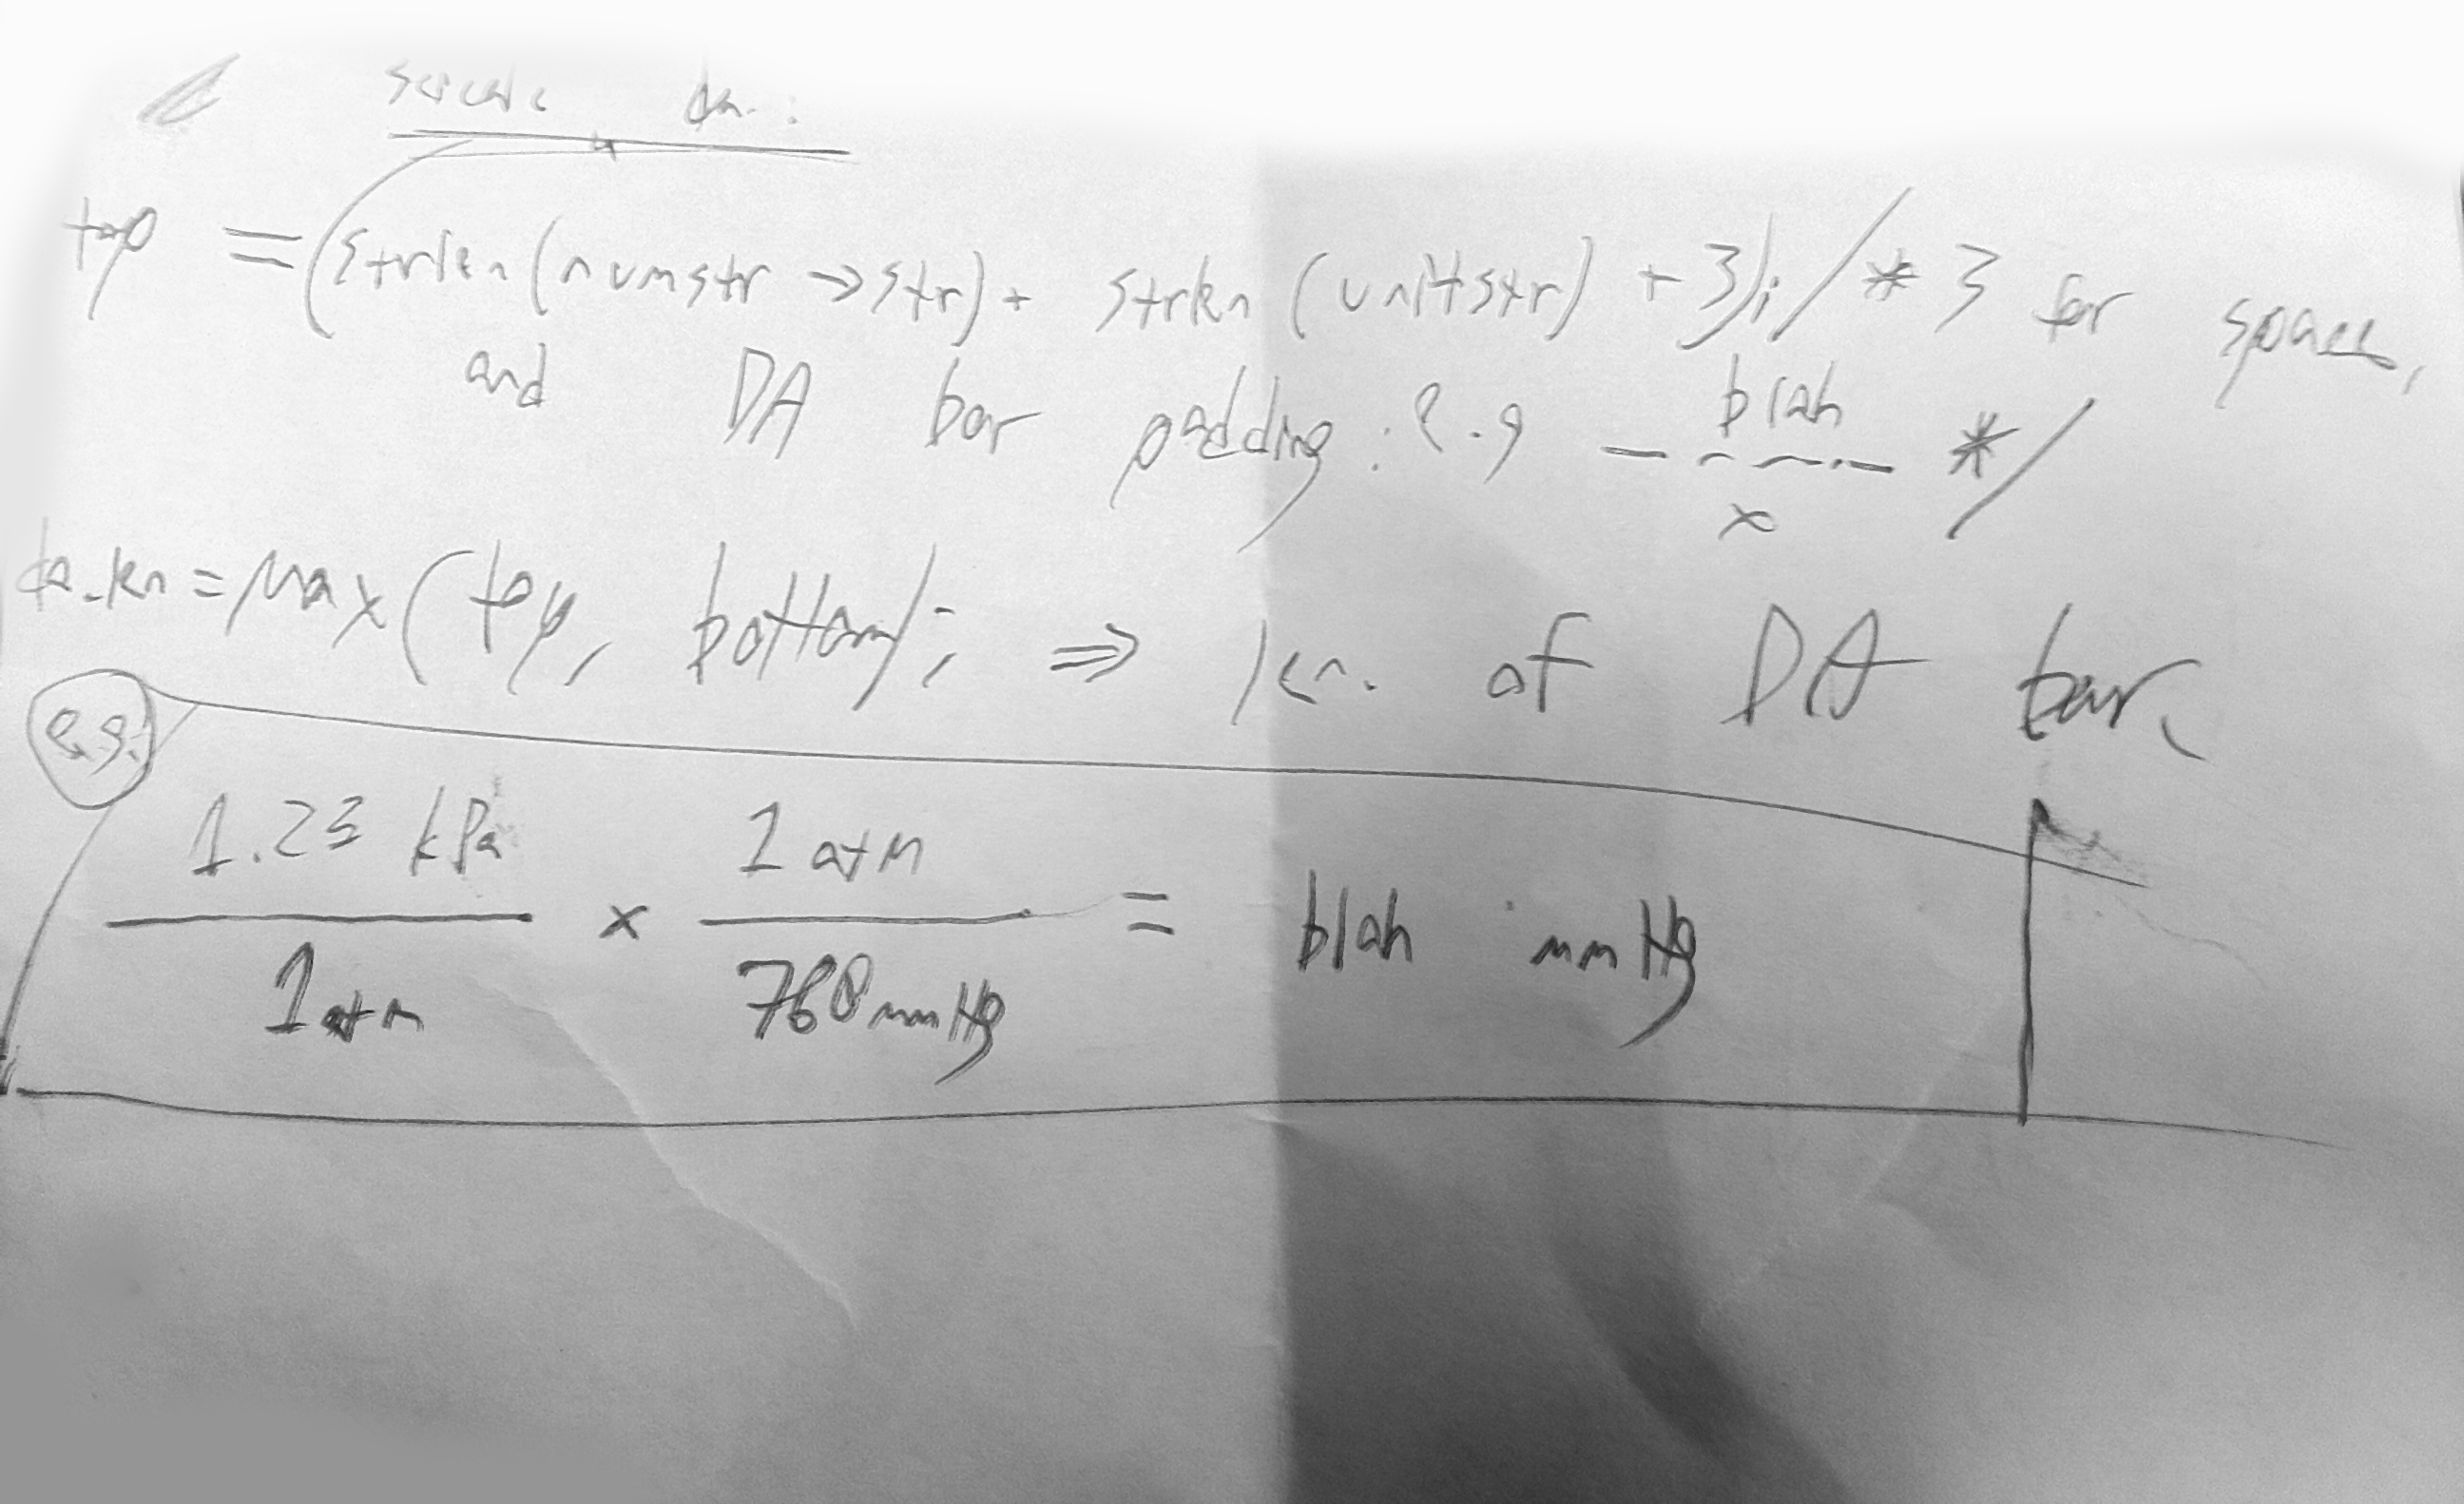 scicalc da:
top = (strlen(numstr->str) + strlen(unitstr) + 3); /* 3 for spaces,
and DA bar padding: e.g blah */
------
x
da_len = Max(top, bottom); ⇒ len. of DA bar.
e.g.
1.23 kPa 1 atm
× = blah mmHg
1 atm 760 mmHg